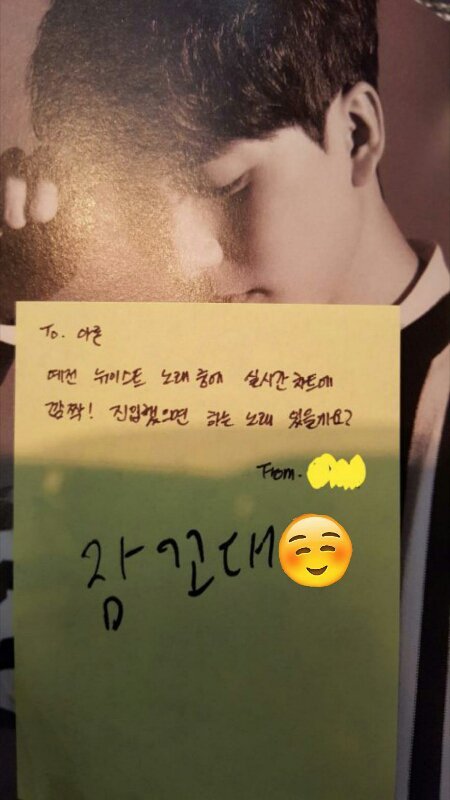 To. 아론
예전 뉴이스트 노래 중에 실시간 차트에
깜짝! 진입했으면 하는 노래 있을까요?
From.
잠꼬대